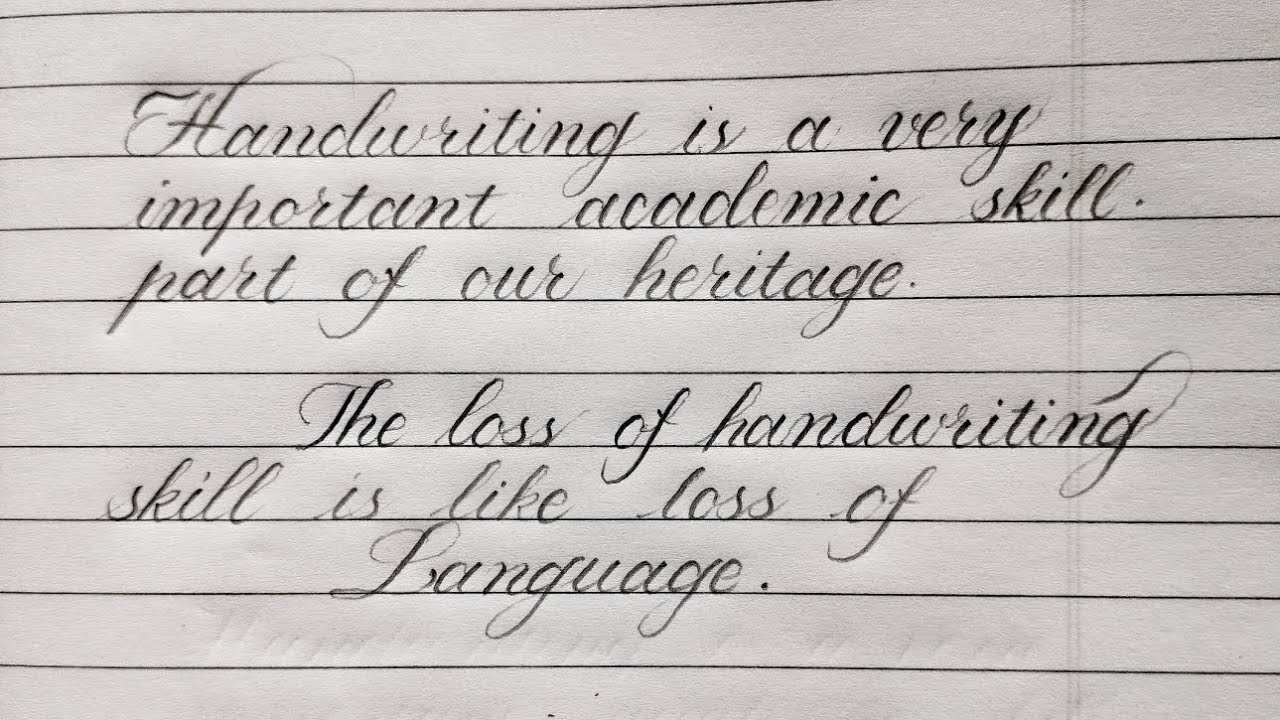 Handwriting is a very
important academic skill.
part of our heritage.
The loss of handwriting
skill is like loss of
Language.